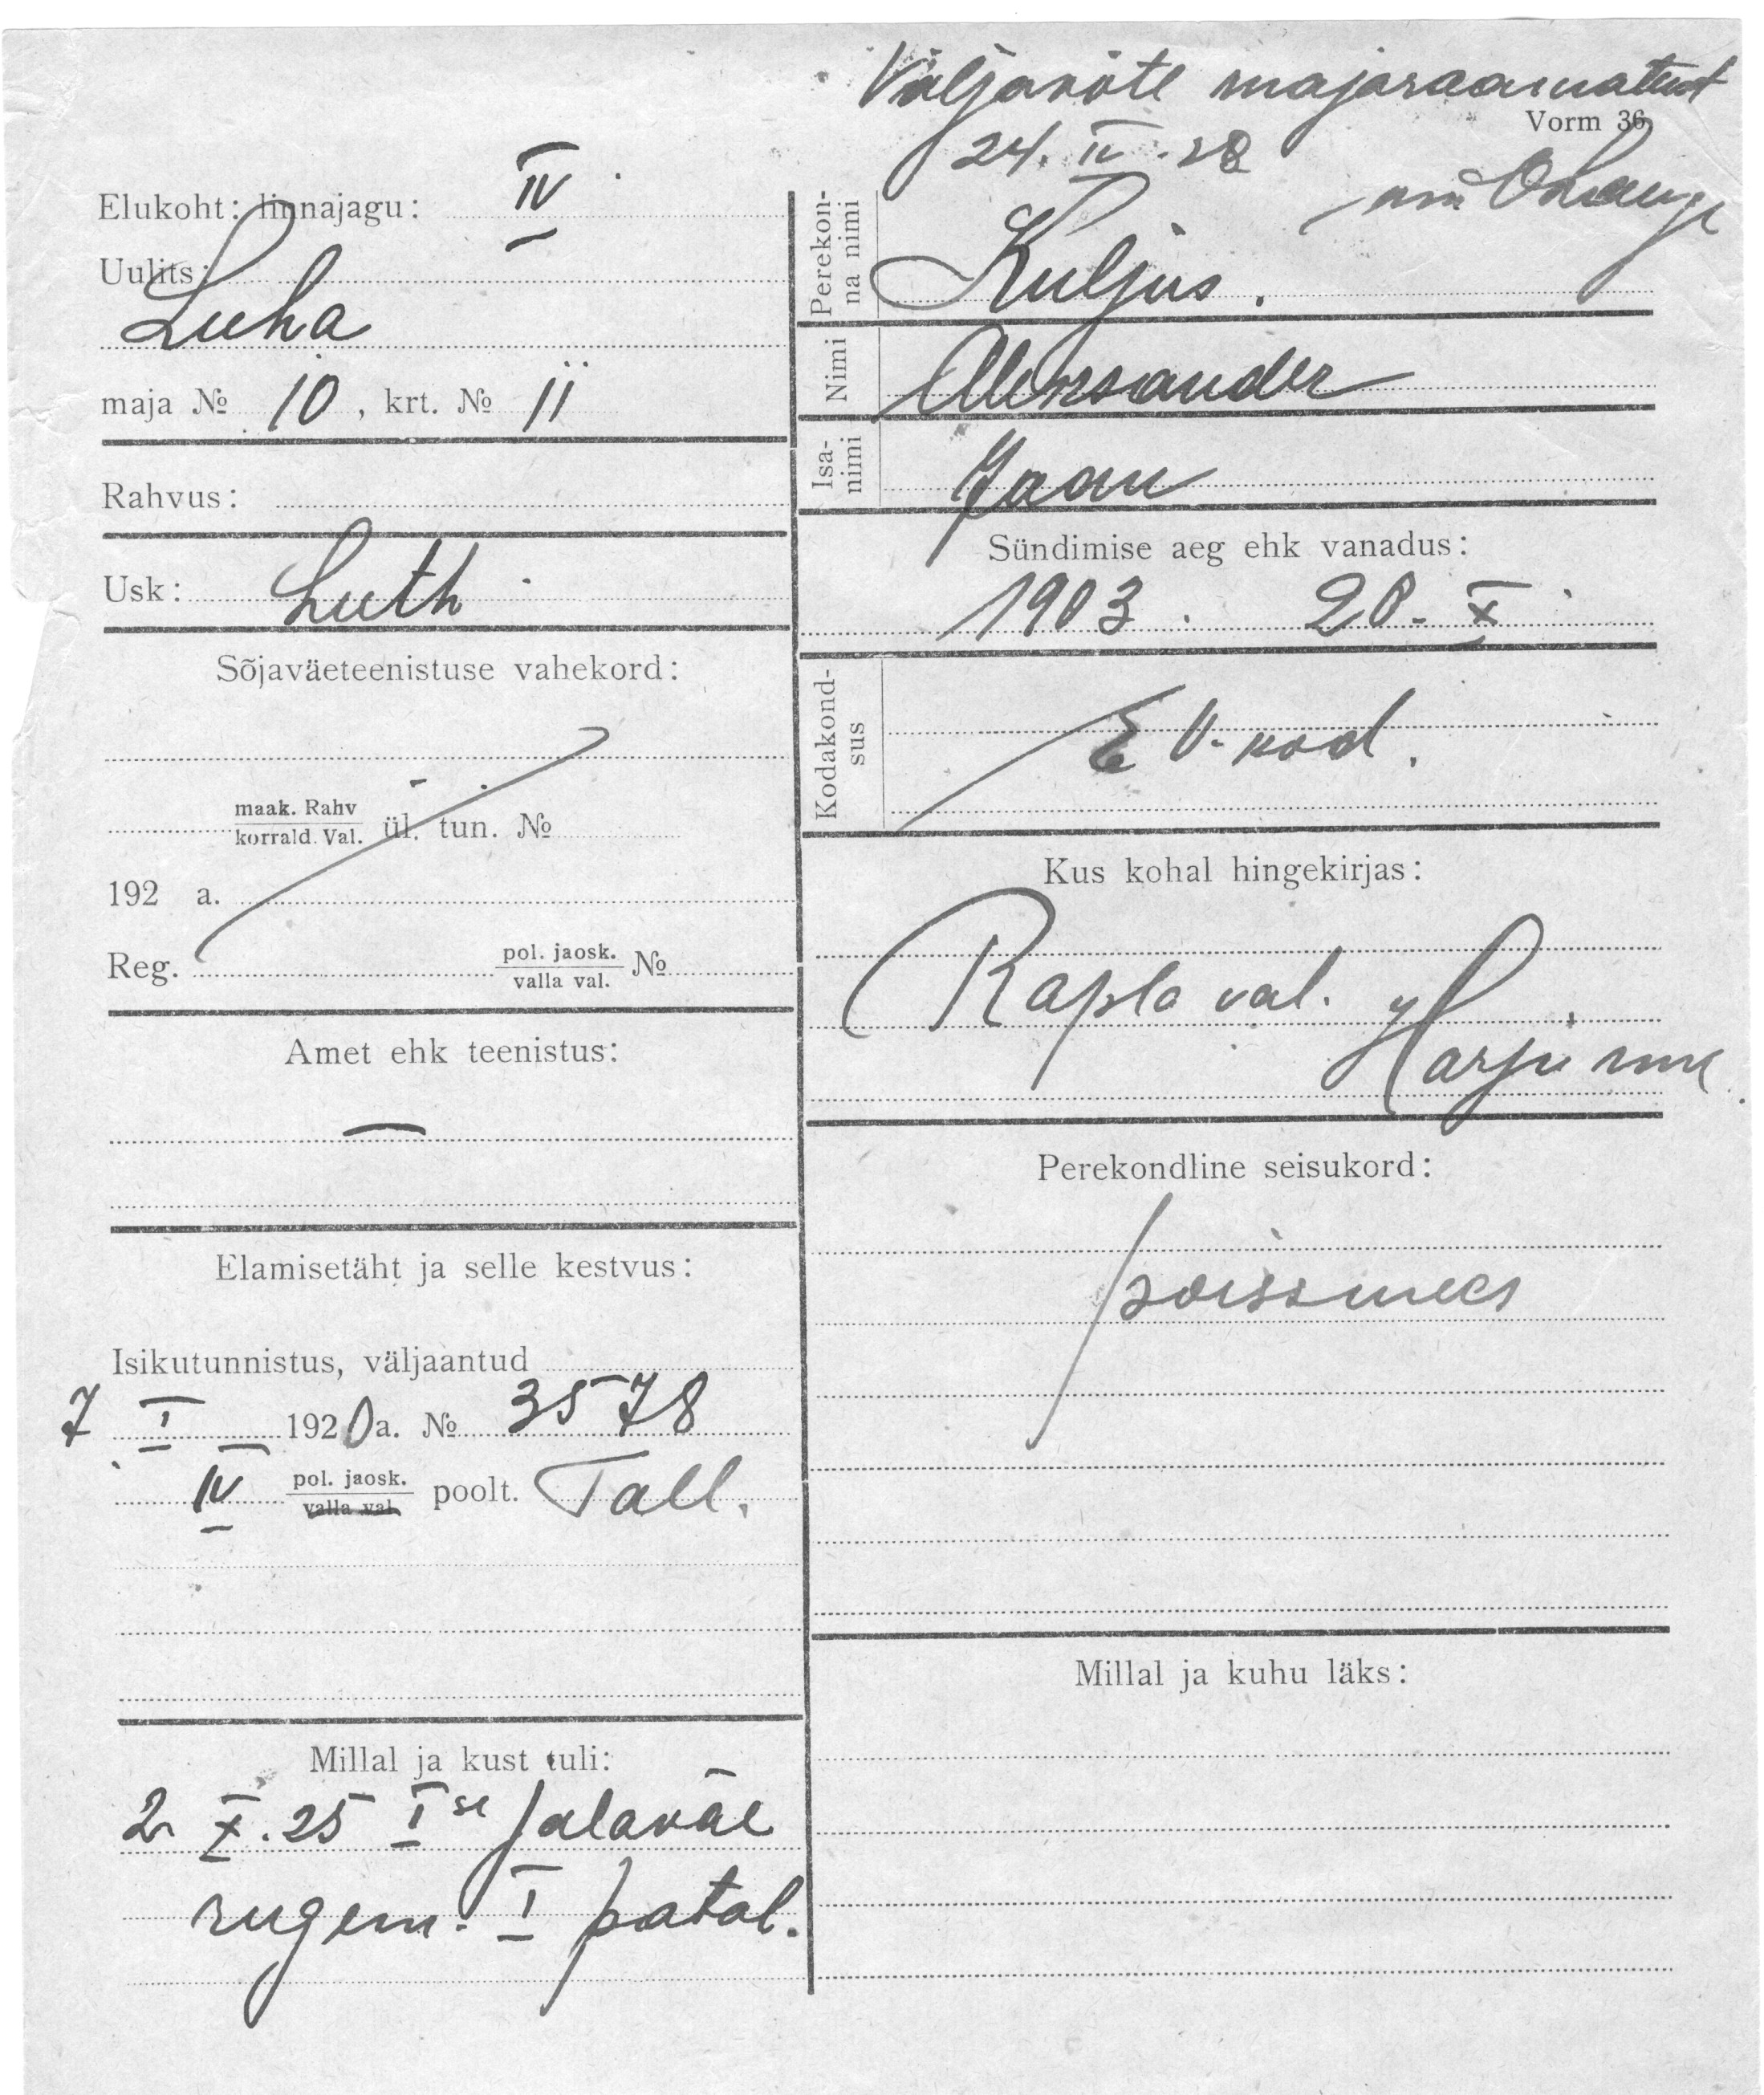 Väljavõte majaraamatust
Vorm 36
24. IV. 28
Elukoht: linnajagu: IV
Uulits:
Luha
maja № 10, krt. № 11
Rahvus:
Usk: Luth
Sõjaväeteenistuse vahekord:
maak. Rahv
korrald. Val. ül. tun. №
192 a.
Reg. pol. jaosk. №
valla val.
Amet ehk teenistus:
—
Elamisetäht ja selle kestvus:
Isikutunnistus, väljaantud
7 I 1920 a. № 3578
IV pol. jaosk. poolt. Tall.
valla val.
Millal ja kust tuli:
2 X. 25 I se jalaväe
rugem. I patal.
Perekon-
na nimi
Kuljus.
Nimi
Aleksander
Isa-
nimi
Jaan
Sündimise aeg ehk vanadus:
1903. 20. X
Kodakond-
sus
E V. kod.
Kus kohal hingekirjas:
Rapla val. Harju mk
Perekondline seisukord:
poissmees
Millal ja kuhu läks: